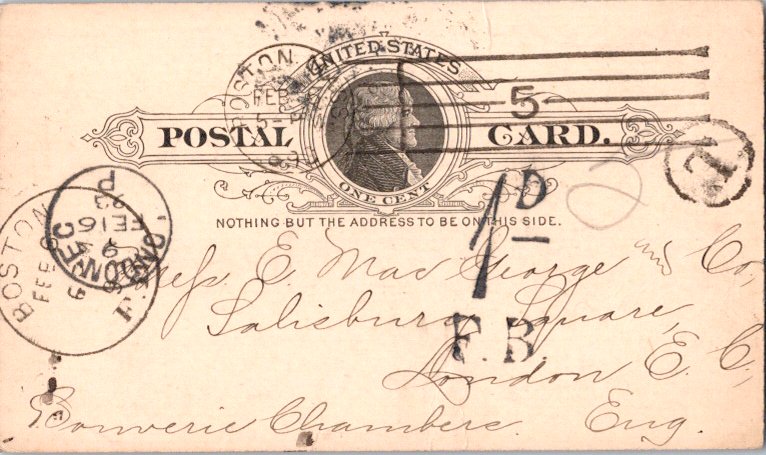 UNITED STATES
POSTAL CARD.
ONE CENT
NOTHING BUT THE ADDRESS TO BE ON THIS SIDE.
BOSTON
FEB
5
T
1D
F.B
BOSTON
FEB 6
LONDON EC
FE 16
Mess. E. MacGeorge and Co,
Salisbury Square,
London E. C,
Bouverie Chambers. Eng.